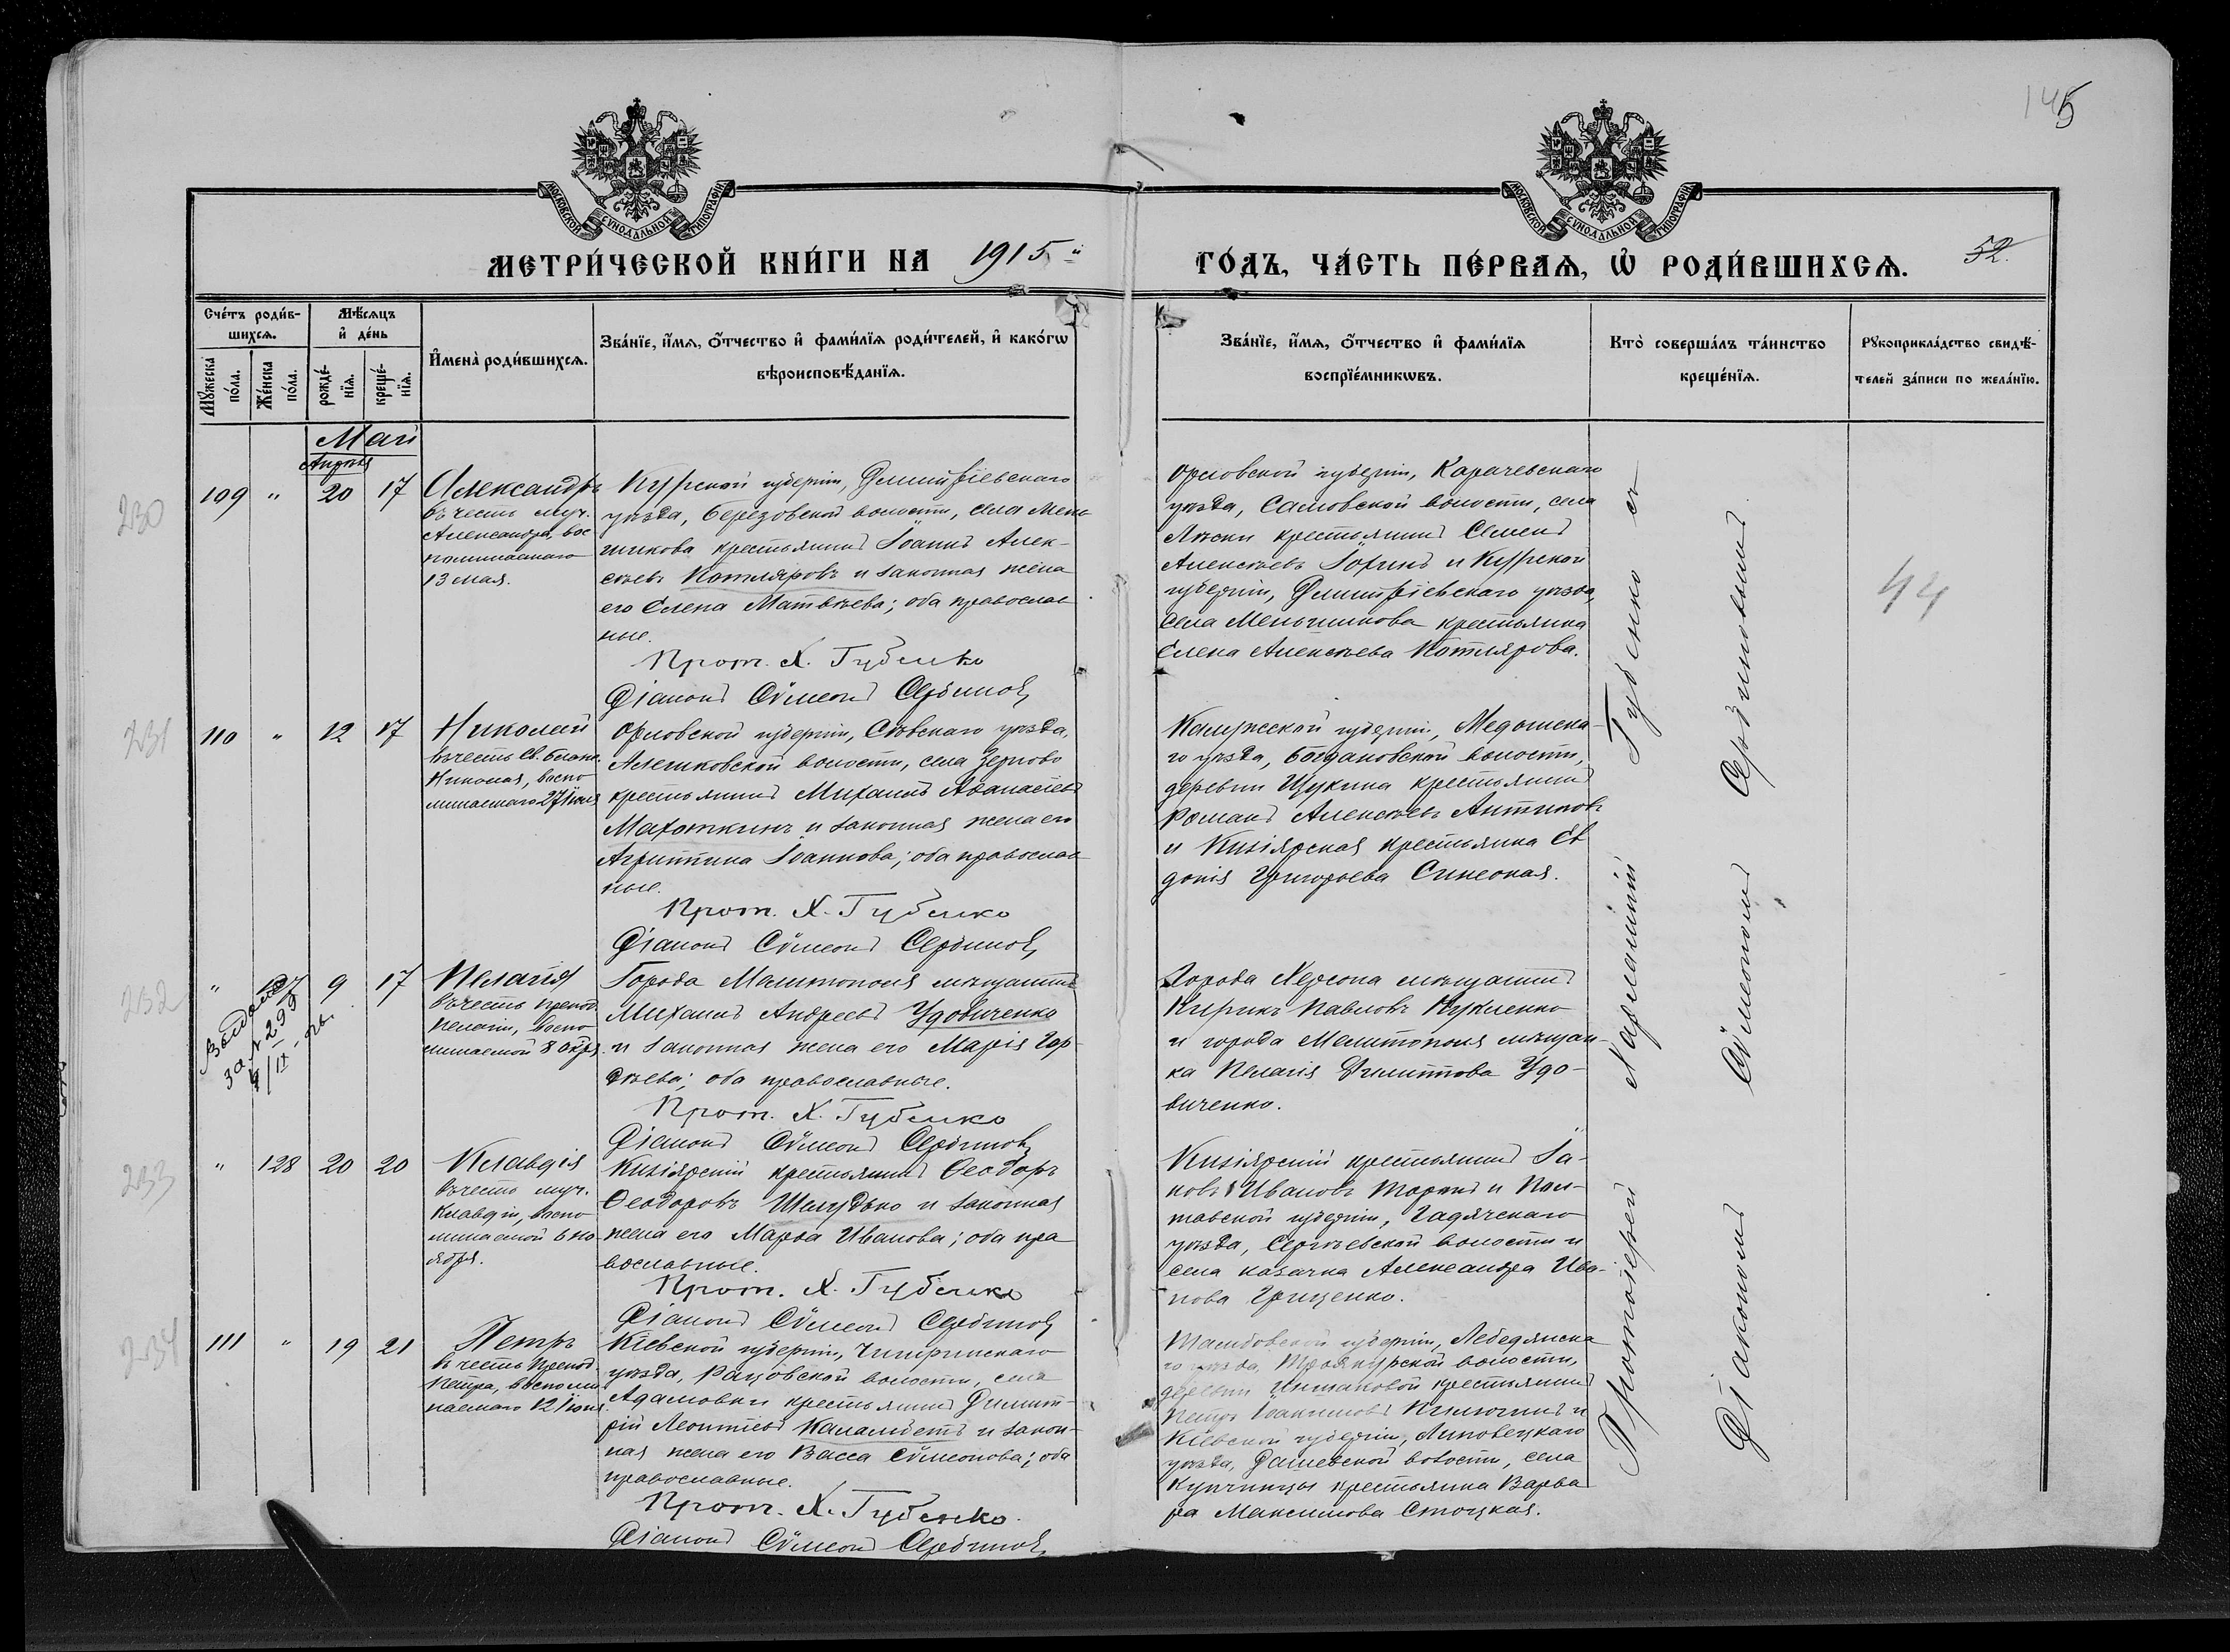 145
МОСКОВСКОЙ СѴНОДАЛЬНОЙ ТИПОГРАФІИ
МОСКОВСКОЙ СѴНОДАЛЬНОЙ ТИПОГРАФІИ
МЕТРИ́ЧЕСКОЙ КНИ́ГИ НА 1915 й
ГО́ДЪ, ЧА́СТЬ ПЕ́РВАѦ, Ѡ РОДИ́ВШИХСѦ. 52.
Сче́тъ роди́в-
шихсѧ.
Мꙋ́жеска по́ла.
Же́нска по́ла.
Мѣ́сѧцъ
и҆ де́нь
рожде́-
нїѧ.
креще́-
нїѧ.
И҆мена̀ роди́вшихсѧ.
Зва́нїе, и҆́мѧ, ѻ҆́тчество и҆ фами́лїѧ роди́телей, и҆ како́гѡ
вѣроисповѣ́данїѧ.
Зва́нїе, и҆́мѧ, ѻ҆́тчество и҆ фами́лїѧ
воспрїе́мникѡвъ.
Кто̀ соверша́лъ та́инство
креще́нїѧ.
Рꙋкоприкла́дство свидѣ́-
телей за́писи по жела́нїю.
Май
Апрѣля
230
109 " 20 17
Александръ
въ честь муч.
Александра, вос
поминаемаго
13 мая.
Курской губерніи, Димитріевскаго
уѣзда, Березовской волости, села Мень
шикова крестьянинъ Іоаннъ Алек-
сѣевъ Котляровъ и законная жена
его Елена Матвѣева; оба православ
ные.
Прот. Х. Губенко
Діаконъ Сѵмеонъ Сербиновъ
Орловской губерніи, Карачевскаго
уѣзда, Самовской волости, села
Лѣски крестьянинъ Семенъ
Алексѣевъ и Курской
губерніи, Димитріевскаго уѣзда,
села Меньшикова крестьянка
Елена Алексѣева Котлярова.
44
231
110 " 12 17
Николай
въ честь Св. блажен.
Николая, воспо
минаемаго 27 іюля
Орловской губерніи, Сѣвскаго уѣзда,
Алешковской волости, села Зерново
крестьянинъ Михаилъ Аѳанасіевъ
Махоткинъ и законная жена его
Агриппина Іоаннова; оба православ
ные.
Прот. Х. Губенко
Діаконъ Сѵмеонъ Сербиновъ
Калужской губерніи, Медынска-
го уѣзда, Богдановской волости,
деревни Щукина крестьянинъ
Романъ Алексѣевъ Антиповъ
и Кизіярская крестьянка Ев
докія Григорьева Синеокая.
232
" 127 9 17
Выдано
за № 299
4/IX
Пелагія
въ честь препод.
Пелагіи, воспо
минаемой 8 октр.
Города Мелитополя мѣщанинъ
Михаилъ Андреевъ Удовиченко
и законная жена его Марія Гор-
дѣева; оба православные.
Прот. Х. Губенко
Діаконъ Сѵмеонъ Сербиновъ
Города Херсона мѣщанинъ
Кирикъ Павловъ Кукленко
и города Мелитополя мѣщан-
ка Пелагія Филиппова Удо-
виченко.
233
" 128 20 20
Клавдія
въ честь муч.
Клавдіи, воспо
минаемой 6 но-
ября.
Кизіярскій крестьянинъ Ѳеодоръ
Ѳеодоровъ Шелудько и законная
жена его Марѳа Иванова; оба пра
вославные.
Прот. Х. Губенко
Діаконъ Сѵмеонъ Сербиновъ
Кизіярскій крестьянинъ Іа-
ковъ Ивановъ и Пол-
тавской губерніи, Гадячскаго
уѣзда, Сергѣевской волости и
села казачка Александра Ива-
нова Гриценко.
234
111 " 19 21
Петръ
въ честь препод.
Петра, воспоми
наемаго 12 іюня.
Кіевской губерніи, Чигиринскаго
уѣзда, Рацовской волости, села
Адамовки крестьянинъ Димит-
рій Леонтіевъ Каламбетъ и закон-
ная жена его Васса Сѵмеонова; оба
православные.
Прот. Х. Губенко.
Діаконъ Сѵмеонъ Сербиновъ
Тамбовской губерніи, Лебедянска
го уѣзда, Троекурской волости,
деревни крестьянинъ
Петръ Іоакимовъ и
Кіевской губерніи, Липовецкаго
уѣзда, Дашевской волости, села
Купчинцы крестьянка Варва
ра Максимова Стоцкая.
Протоіерей Харлампій Губенко съ
Діакономъ Сѵмеономъ Сербиновымъ